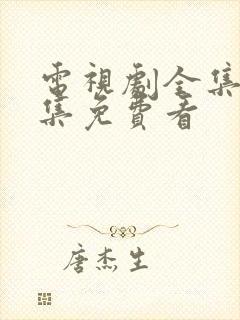 電視劇全集
集免費看
唐杰生